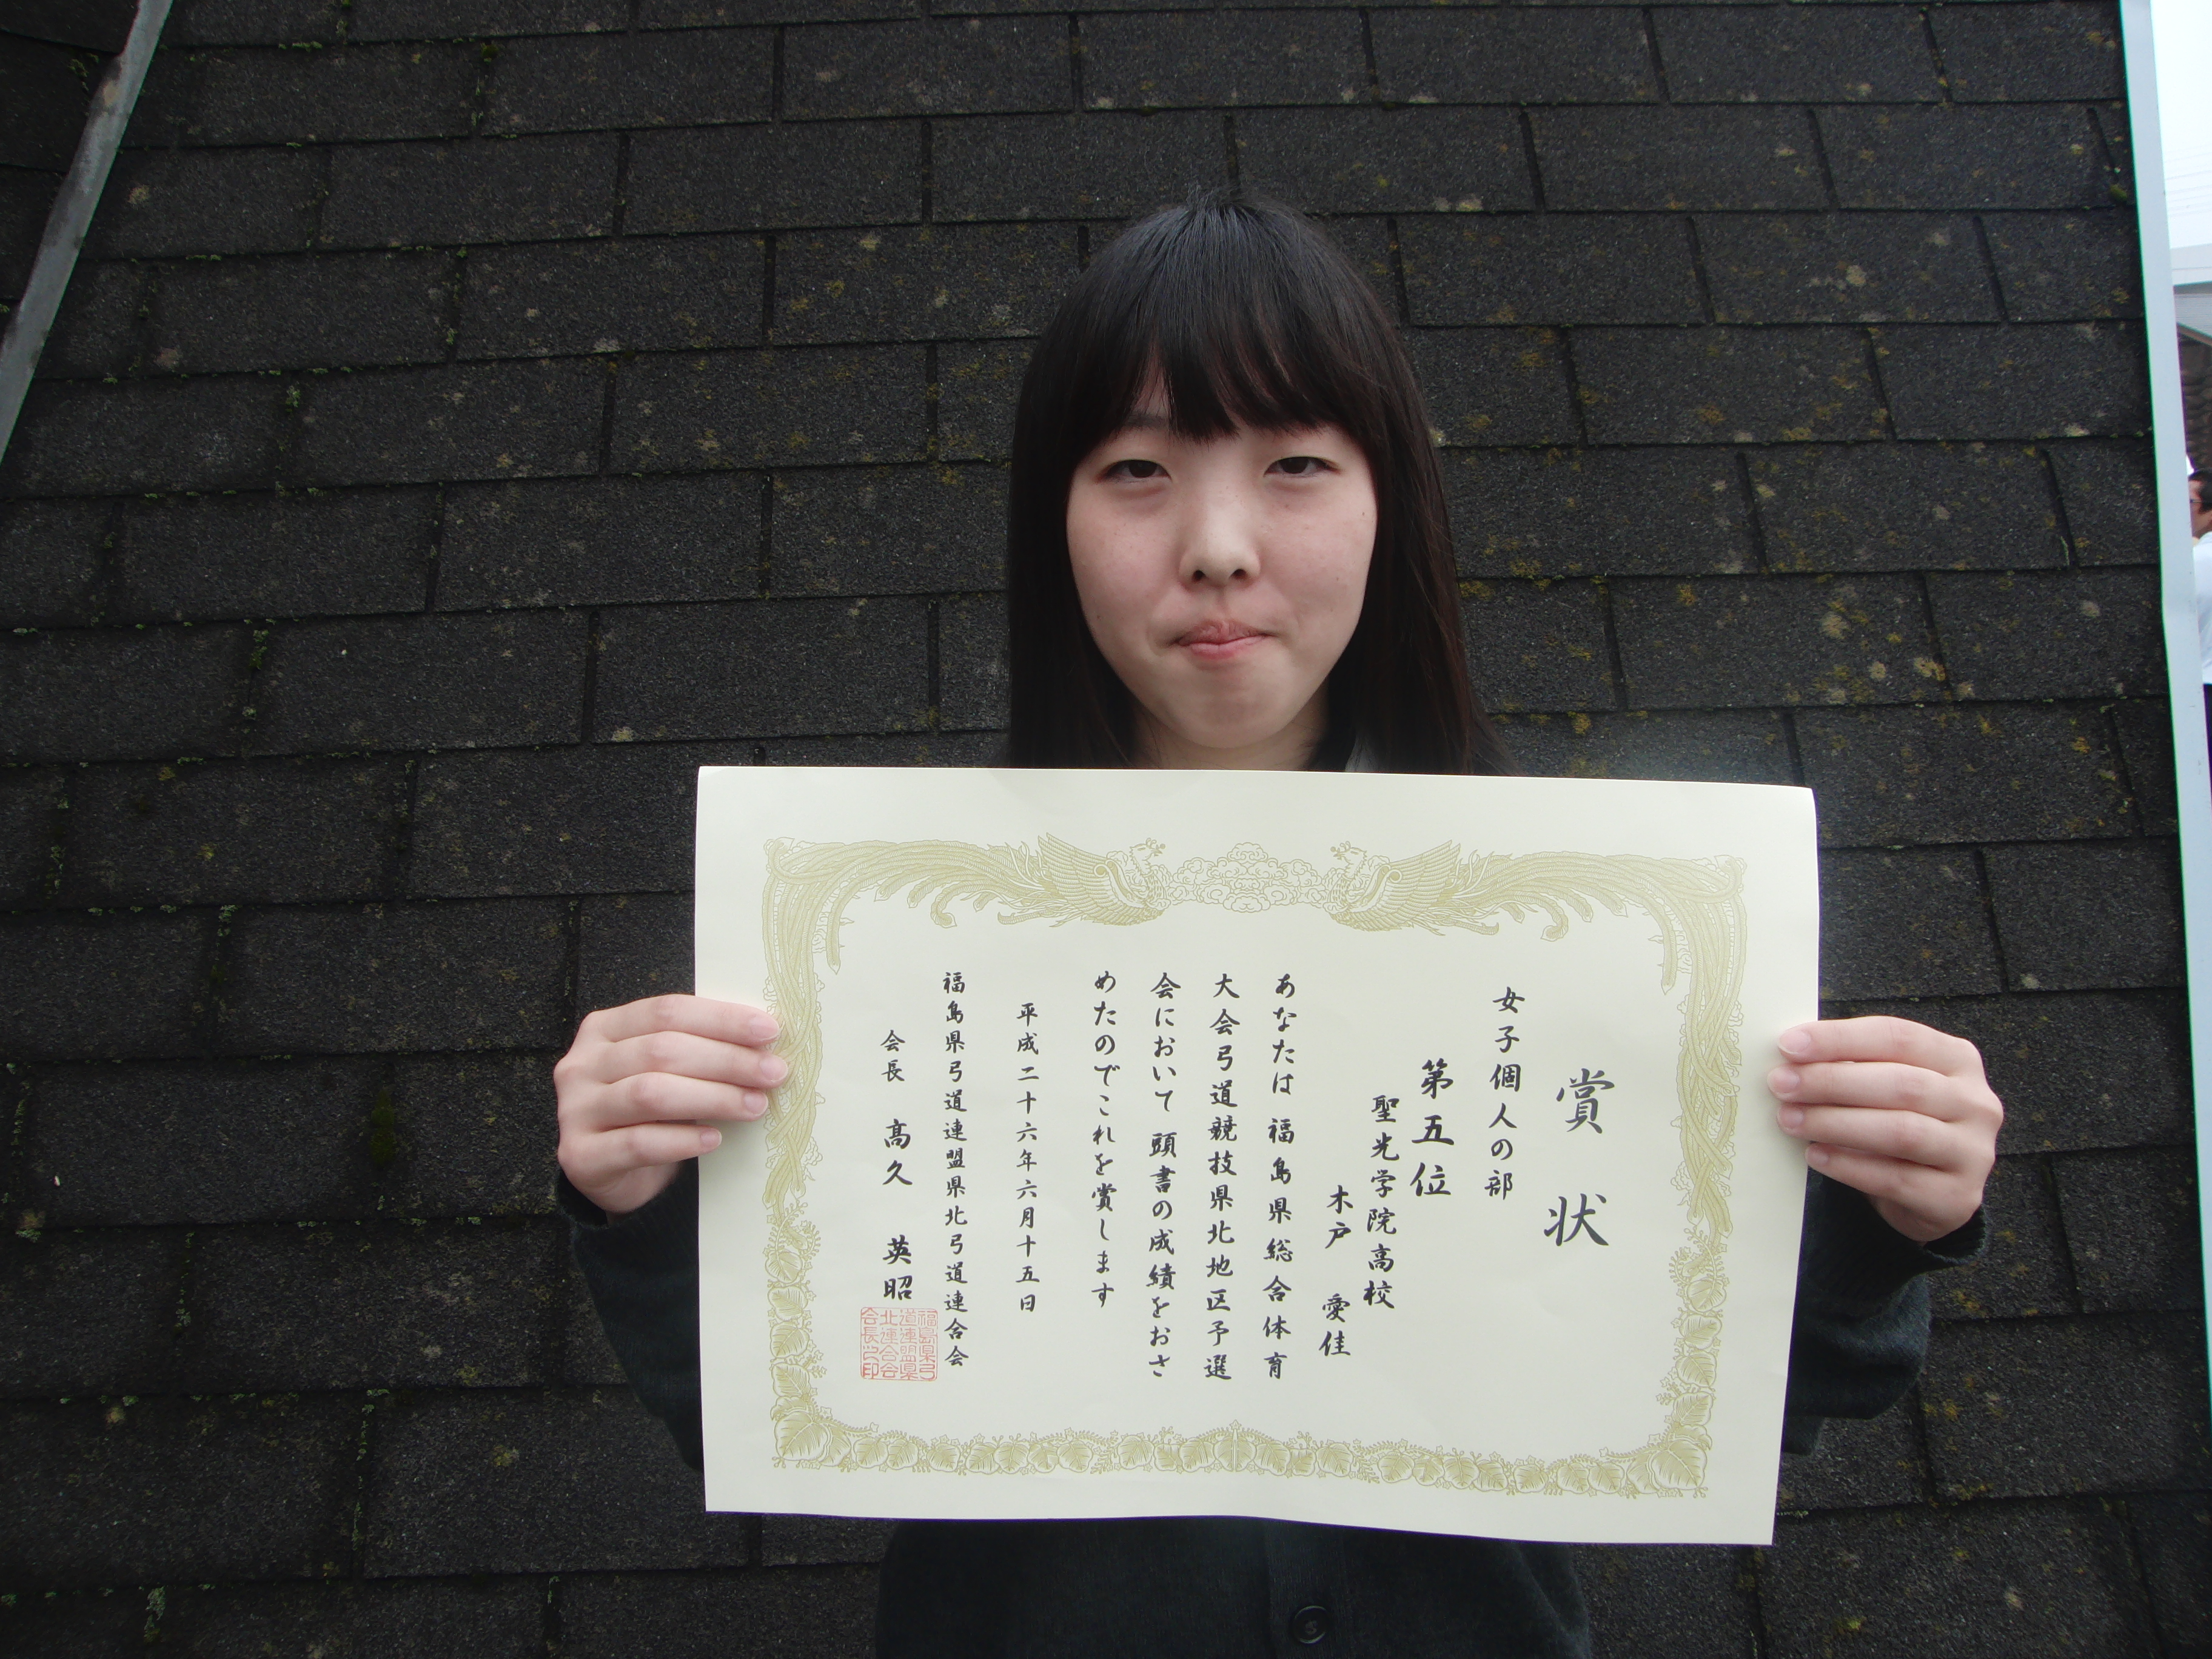 賞状
女子個人の部
第五位
聖光学院高校
木戸 愛佳
あなたは 福島県総合体育
大会弓道競技県北地区予選
会において 頭書の成績をおさ
めたのでこれを賞します
平成二十六年六月十五日
福島県弓道連盟県北弓道連合会
会長 髙久 英昭
福島県弓
道連盟県
北連合会
会長之印